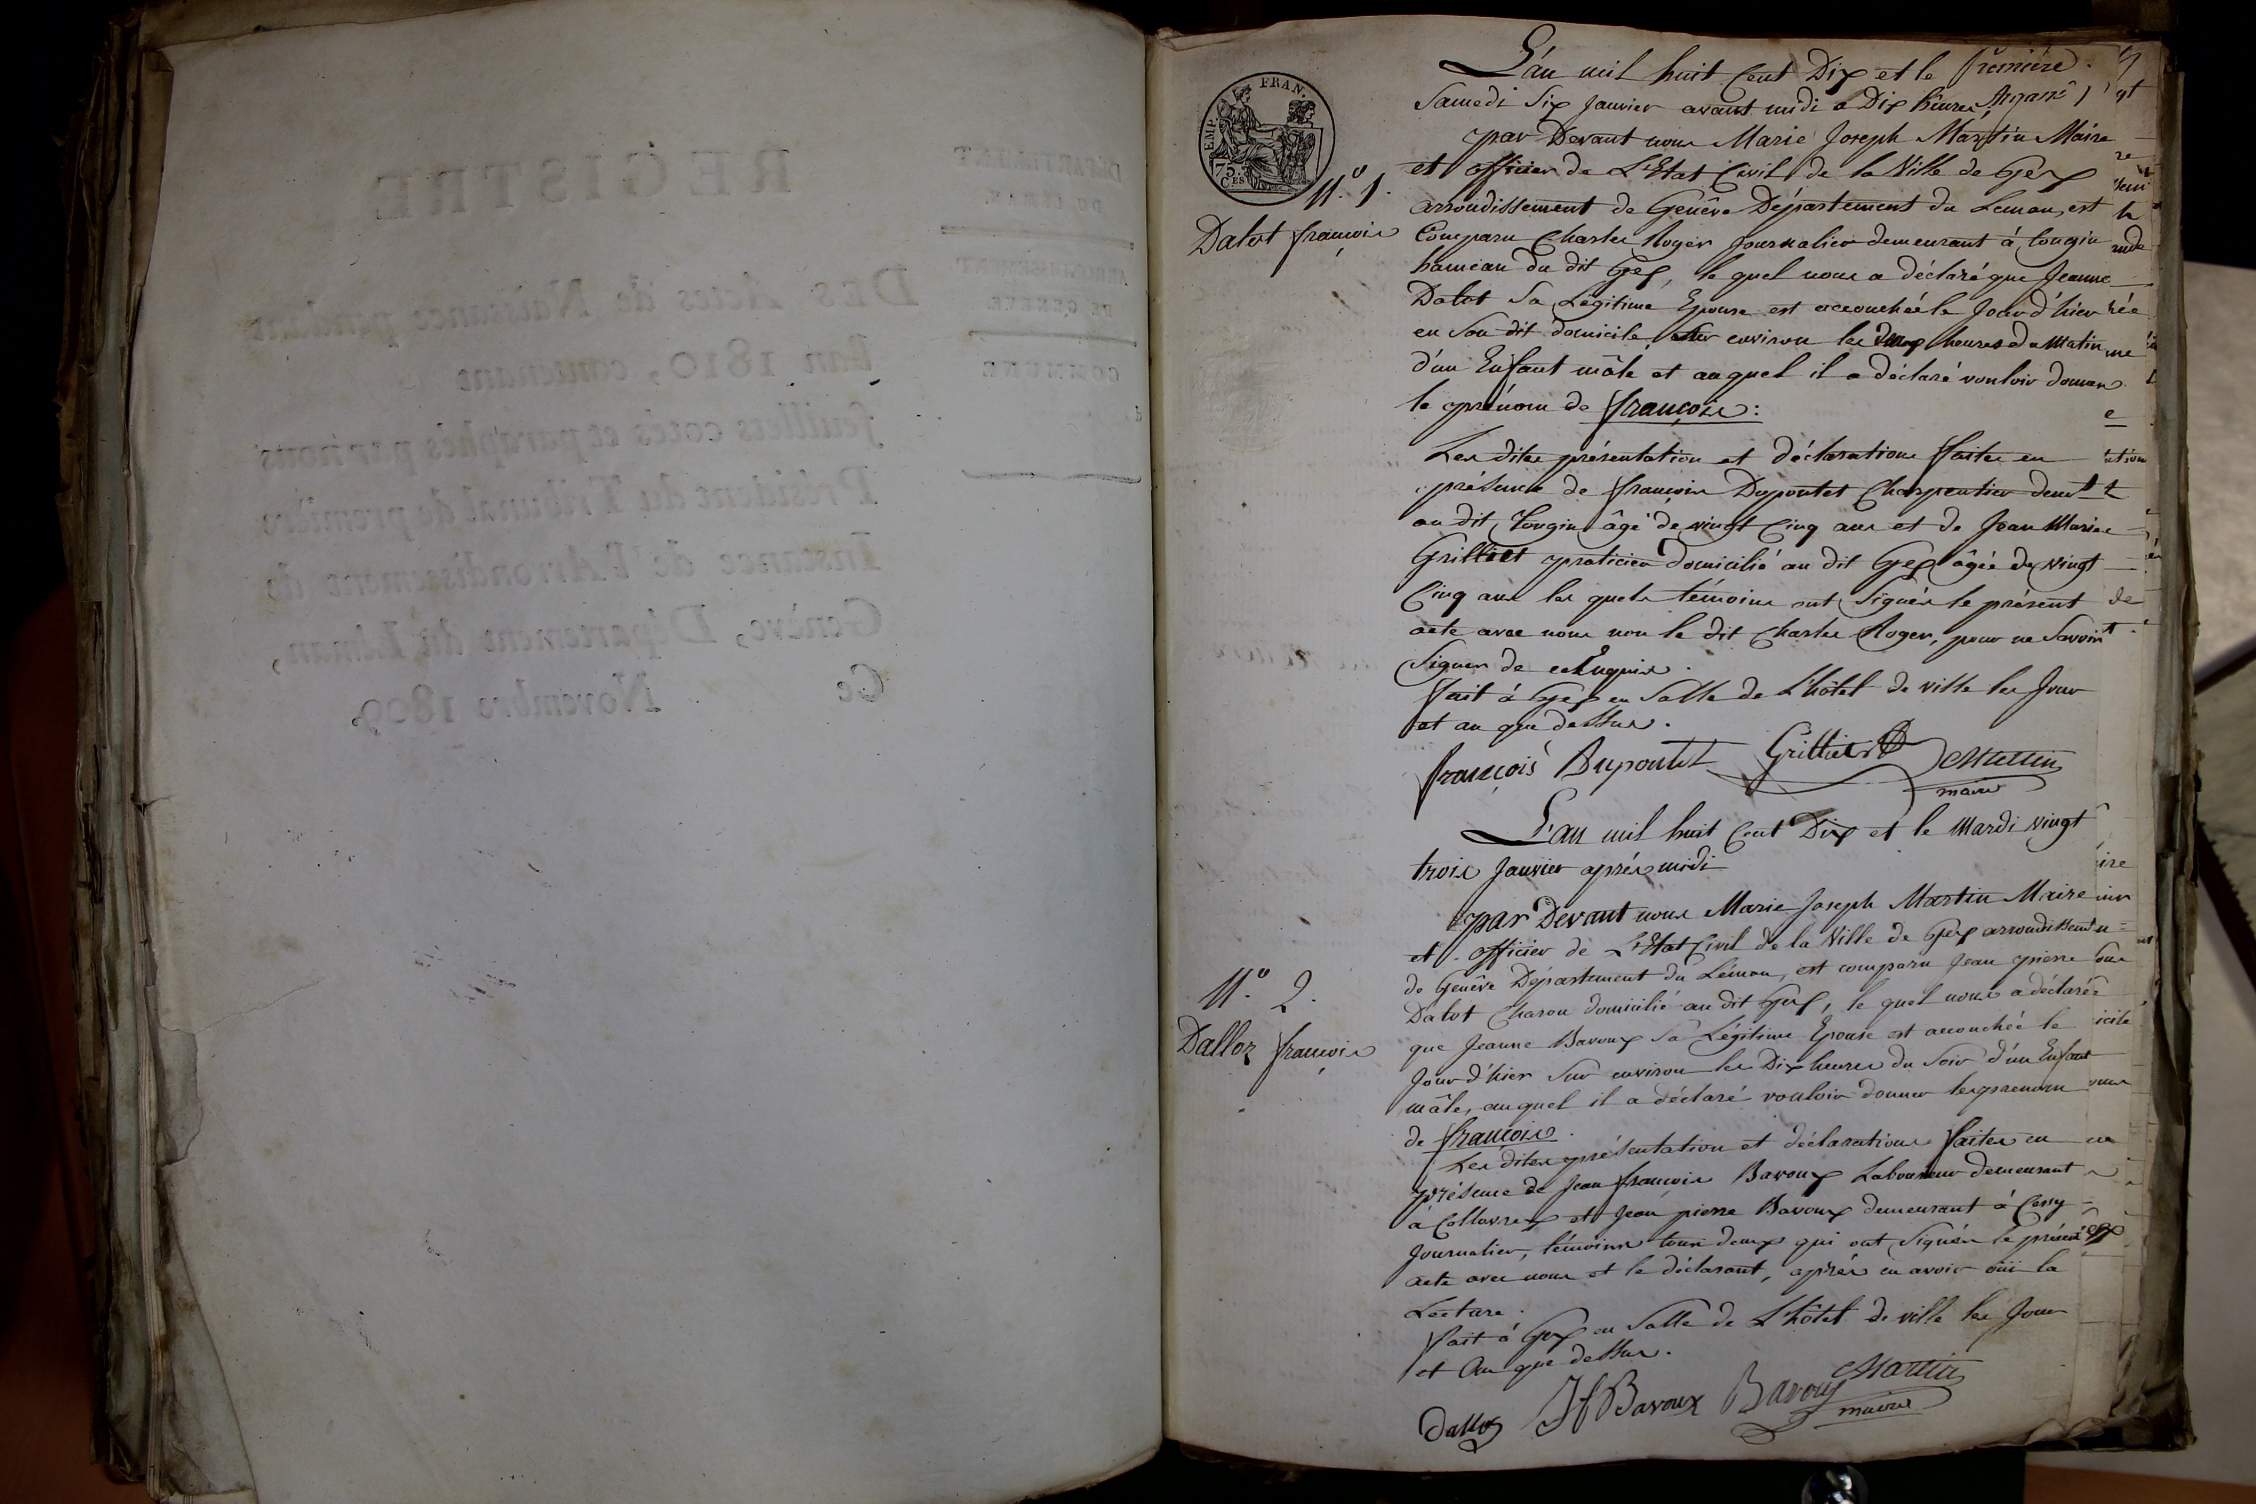 REGISTRE
DÉPARTEMENT
DU LÉMAN.
ARRONDISSEMENT
DE GENÈVE.
COMMUNE
DES Actes de Naissance pendant
l'an 1810, contenant
feuillets cotés et paraphés par nous
Président du Tribunal de première
Instance de l'Arrondissement de
Genève, Département du Léman,
Ce Novembre 1809.
EMP. FRAN.
75.
CES
N.o 1.
Dalot françois
L'an mil huit Cent Dix et le première
Samedi Six Janvier avant midi à Dix heures
par Devant nous Marie Joseph Martin Maire
et officier de L'Etat Civil de la Ville de Gex
arrondissement de Genêve Département du Leman, est
Comparu Charles Roger Journalier demeurant à tougin
hameau du dit Gex, le quel nous a déclaré que Jeanne
Dalot Sa Légitime Epouse est accouchée le Jour d'hier
en Son dit domicile, environ les heures du Matin
d'un Enfant mâle et auquel il a déclaré vouloir donner
le prénom de françois :
Les dites présentation et déclaration faites en
présence de françois Dupontet Charpentier demt
au dit Tougin âgé de vingt Cinq ans et de Jean Marie
Grilliet praticien domicilié au dit Gex âgée de vingt
Cinq ans les quels témoins ont Signés le présent
acte avec nous non le dit Charles Roger, pour ne Savoir
Signer de ce Enquis.
fait à Gex en Salle de L'hôtel de ville les Jour
et an que dessus.
françois Dupontet Grilliet Martin
maire
L'an mil huit Cent Dix et le Mardi vingt
trois Janvier après midi
par Devant nous Marie Joseph Martin Maire
et officier de L'Etat Civil de la Ville de Gex arrondissemt
N.o 2.
de Genêve Département du Léman, est comparu Jean pierre
Dalloz françois
Dalot Charon domicilié au dit Gex, le quel nous a déclaré
que Jeanne Bavoux Sa Légitime Epouse est accouchée le
Jour d'hier Sur environ les Dix heures du Soir d'un Enfant
mâle, auquel il a déclaré vouloir donner les prenom
de françois.
Les dites présentation et déclarations faites en
présence de Jean françois Bavoux Laboureur demeurant
à Collovrex et Jean pierre Bavoux demeurant à Cessy
Journalier, témoins tous deux qui ont Signés le présent
acte avec nous et le déclarant, après en avoir oüi la
Lecture.
fait à Gex en Salle de L'hôtel de ville les Jour
et An que dessus.
Dalloz Jf Bavoux Bavoux Martin
maire